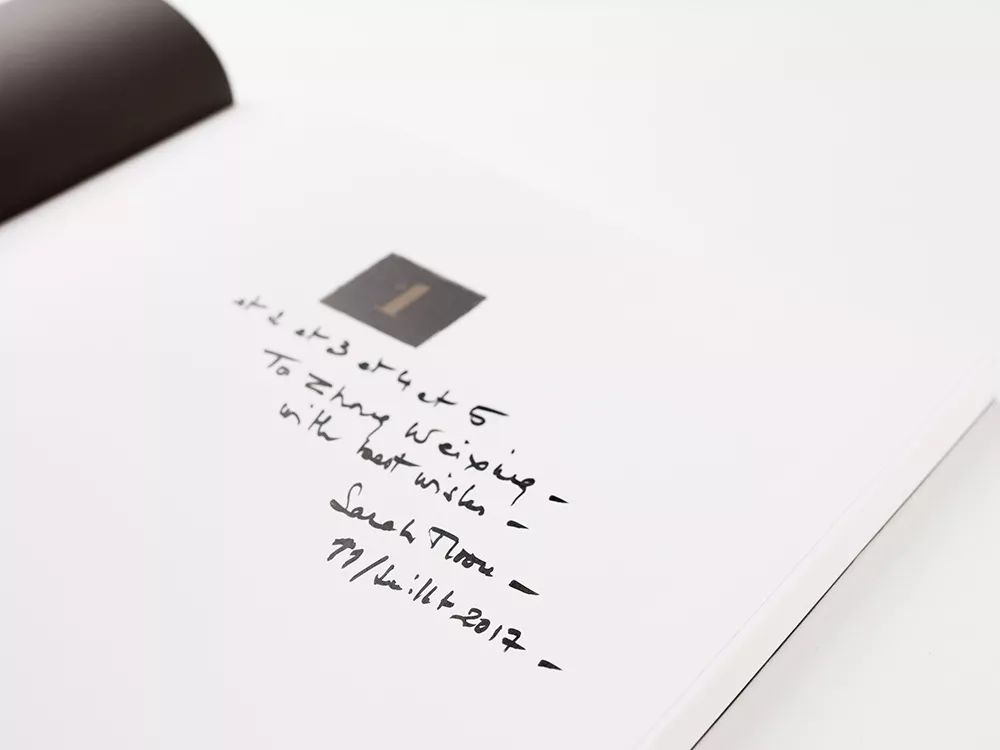 1
et 2 et 3 et 4 et 5
To Zhong Weixing -
with best wishes -
Sarah Moon -
11/Juillet 2017 -